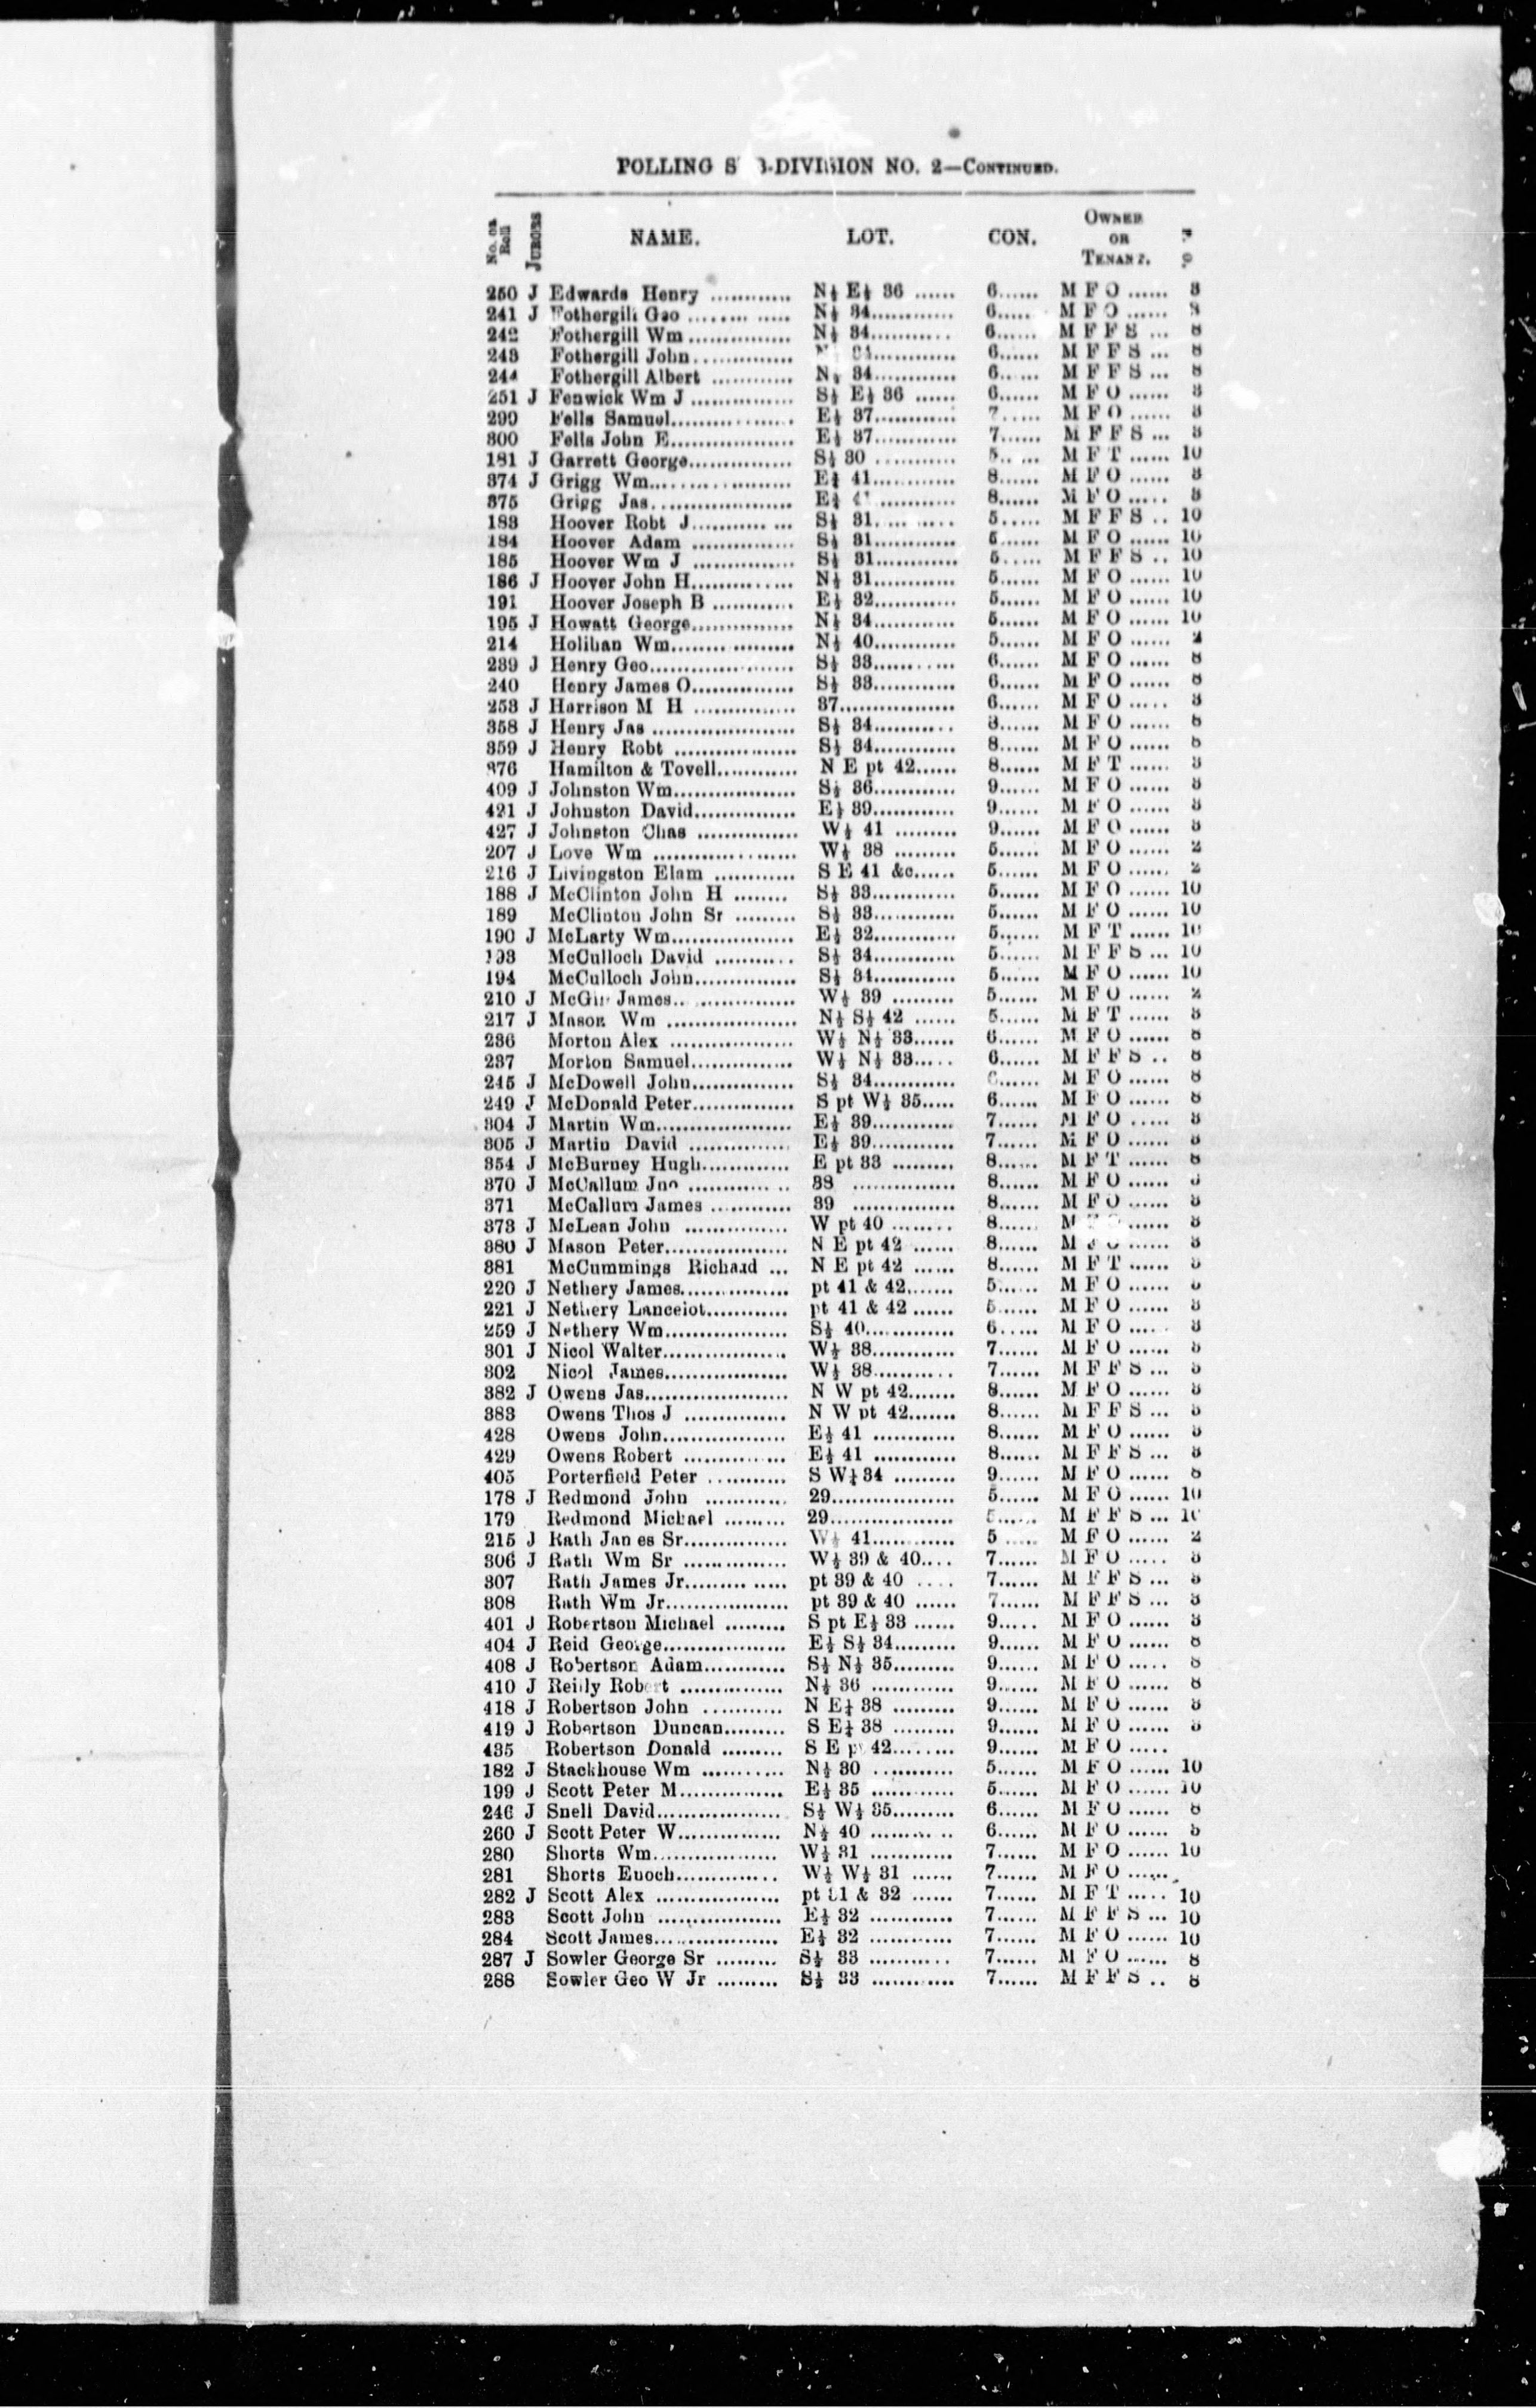 POLLING S B-DIVISION NO. 2—CONTINUED.
No. on Roll JURORS NAME. LOT. CON. OWNER OR TENANT. P. O.
250 J Edwards Henry ............ N½ E½ 36 ...... 6...... M F O ...... 3
241 J Fothergill Geo ............. N½ 34............ 6..... M F O ...... 8
242 Fothergill Wm ............... N½ 34........... 6...... M F F S ... 8
243 Fothergill John.............. 34............ 6...... M F F S ... 8
244 Fothergill Albert ............ N½ 34............ 6...... M F F S ... 8
251 J Fenwick Wm J ............... S½ E½ 36 ...... 6...... M F O ...... 3
299 Fells Samuel.................. E½ 37............ 7..... M F O ...... 3
300 Fells John E.................. E½ 37............ 7...... M F F S ... 3
181 J Garrett George............... S½ 30 ........... 5...... M F T ...... 10
374 J Grigg Wm..................... E½ 41............ 8...... M F O ...... 3
375 Grigg Jas..................... E½ 41 ........... 8...... M F O ..... 3
183 Hoover Robt J............... S½ 31............ 5..... M F F S .. 10
184 Hoover Adam ............... S½ 31............ 5...... M F O ...... 10
185 Hoover Wm J ............... S½ 31............ 5..... M F F S .. 10
186 J Hoover John H............... N½ 31............ 5...... M F O ...... 10
191 Hoover Joseph B ............ E½ 32............ 5...... M F O ...... 10
195 J Howatt George............... N½ 34............ 5...... M F O ...... 10
214 Holihan Wm.................. N½ 40............ 5...... M F O ...... 2
239 J Henry Geo..................... S½ 33............ 6...... M F O ...... 8
240 Henry James O............... S½ 33............ 6...... M F O ...... 8
253 J Harrison M H ............... 37................. 6...... M F O ..... 3
358 J Henry Jas ..................... S½ 34........... 8...... M F O ...... 8
359 J Henry Robt .................. S½ 34............ 8...... M F O ...... 8
376 Hamilton & Tovell............ N E pt 42...... 8...... M F T ...... 3
409 J Johnston Wm.................. S½ 36............ 9...... M F O ...... 3
421 J Johnston David............... E½ 39............ 9...... M F O ...... 3
427 J Johnston Chas ............... W½ 41 ......... 9...... M F O ...... 3
207 J Love Wm ..................... W½ 38 ......... 5...... M F O ...... 2
216 J Livingston Elam ............ S E 41 &c...... 5...... M F O ...... 2
188 J McClinton John H ........ S½ 33............ 5...... M F O ...... 10
189 McClinton John Sr ......... S½ 33............ 5...... M F O ...... 10
190 J McLarty Wm.................. E½ 32............ 5...... M F T ...... 10
193 McCulloch David ........... S½ 34............ 5...... M F F S ... 10
194 McCulloch John............... S½ 34............ 5...... M F O ...... 10
210 J McGir James................. W½ 39 ......... 5...... M F O ...... 2
217 J Mason Wm ................... N½ S½ 42 ...... 5...... M F T ...... 3
236 Morton Alex .................. W½ N½ 33...... 6...... M F O ...... 8
237 Morton Samuel............... W½ N½ 33..... 6...... M F F S .. 8
245 J McDowell John............... S½ 34............ 6...... M F O ...... 8
249 J McDonald Peter............... S pt W½ 35..... 6...... M F O ...... 8
304 J Martin Wm.................... E½ 39............ 7...... M F O ..... 3
305 J Martin David ............... E½ 39............ 7...... M F O ...... 3
354 J McBurney Hugh............. E pt 33 ......... 8...... M F T ...... 8
370 J McCallum Jno .............. 38 ............... 8...... M F O ...... 3
371 McCallum James ............ 39 ............... 8...... M F O ...... 3
373 J McLean John ............... W pt 40 ........ 8...... M ...... 3
380 J Mason Peter.................. N E pt 42 ...... 8...... M F O ...... 3
381 McCummings Richard ... N E pt 42 ...... 8...... M F T ...... 3
220 J Nethery James................ pt 41 & 42....... 5...... M F O ...... 3
221 J Nethery Lancelot............ pt 41 & 42 ...... 5...... M F O ...... 3
259 J Nethery Wm.................. S½ 40............. 6..... M F O ..... 3
301 J Nicol Walter.................. W½ 38............ 7...... M F O ...... 3
302 Nicol James.................. W½ 38........... 7...... M F F S ... 3
382 J Owens Jas..................... N W pt 42....... 8...... M F O ...... 3
383 Owens Thos J ............... N W pt 42....... 8...... M F F S ... 3
428 Owens John.................. E½ 41 ............ 8...... M F O ...... 3
429 Owens Robert ............... E½ 41 ............ 8...... M F F S ... 3
405 Porterfield Peter ........... S W¼ 34 ......... 9...... M F O ...... 8
178 J Redmond John ............ 29.................. 5...... M F O ...... 10
179 Redmond Michael ......... 29.................. 5...... M F F S ... 10
215 J Rath James Sr............... W½ 41............ 5 ..... M F O ...... 2
306 J Rath Wm Sr ............... W½ 39 & 40.... 7...... M F O ..... 3
307 Rath James Jr.............. pt 39 & 40 .... 7...... M F F S ... 3
308 Rath Wm Jr.................. pt 39 & 40 ...... 7...... M F F S ... 3
401 J Robertson Michael ......... S pt E½ 33 ...... 9..... M F O ...... 3
404 J Reid George.................. E½ S½ 34......... 9...... M F O ...... 8
408 J Robertson Adam............ S½ N½ 35......... 9...... M F O ..... 8
410 J Reidly Robert ............... N½ 36 ............ 9...... M F O ...... 8
418 J Robertson John ........... N E¼ 38 ......... 9...... M F O ...... 3
419 J Robertson Duncan......... S E¼ 38 ......... 9...... M F O ...... 3
435 Robertson Donald ......... S E pt 42........ 9...... M F O .....
182 J Stackhouse Wm ........... N½ 30 ............ 5...... M F O ...... 10
199 J Scott Peter M............... E½ 35 ............ 5...... M F O ...... 10
246 J Snell David.................. S½ W½ 35......... 6...... M F O ...... 8
260 J Scott Peter W............... N½ 40 ........... 6...... M F O ...... 3
280 Shorts Wm.................. W½ 31 ............ 7...... M F O ...... 10
281 Shorts Enoch.............. W½ W½ 31 ...... 7...... M F O ......
282 J Scott Alex .................. pt 31 & 32 ...... 7...... M F T ..... 10
283 Scott John .................. E½ 32 ............ 7...... M F F S ... 10
284 Scott James.................. E½ 32 ............ 7...... M F O ...... 10
287 J Sowler George Sr ......... S½ 33 ........... 7...... M F O ...... 8
288 Sowler Geo W Jr ......... S½ 33 ............ 7...... M F F S .. 8